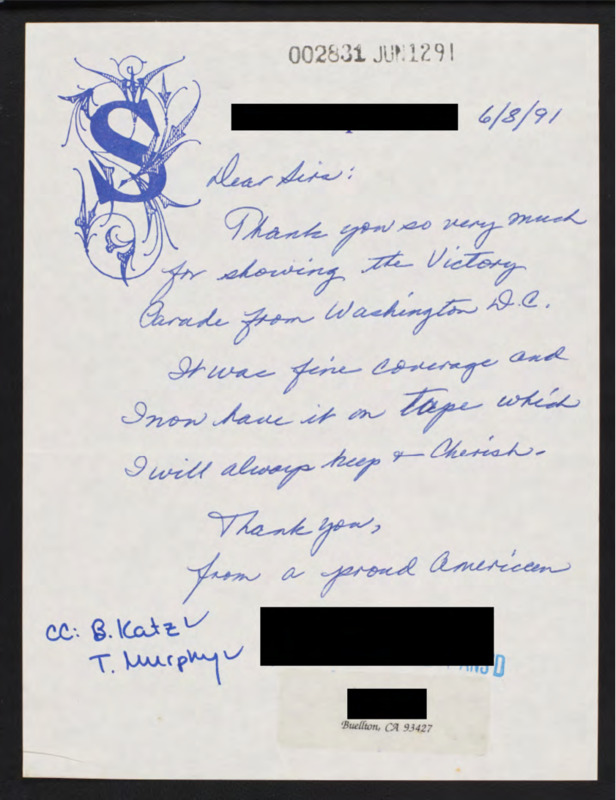 002831 JUN 12 91
S
6/8/91
Dear Sirs:
Thank you so very much
for showing the Victory
Parade from Washington D.C.
It was fine coverage and
I now have it on tape which
I will always keep & Cherish.
Thank you,
from a proud American
cc: B. Katz
T. Murphy
Buellton, CA 93427